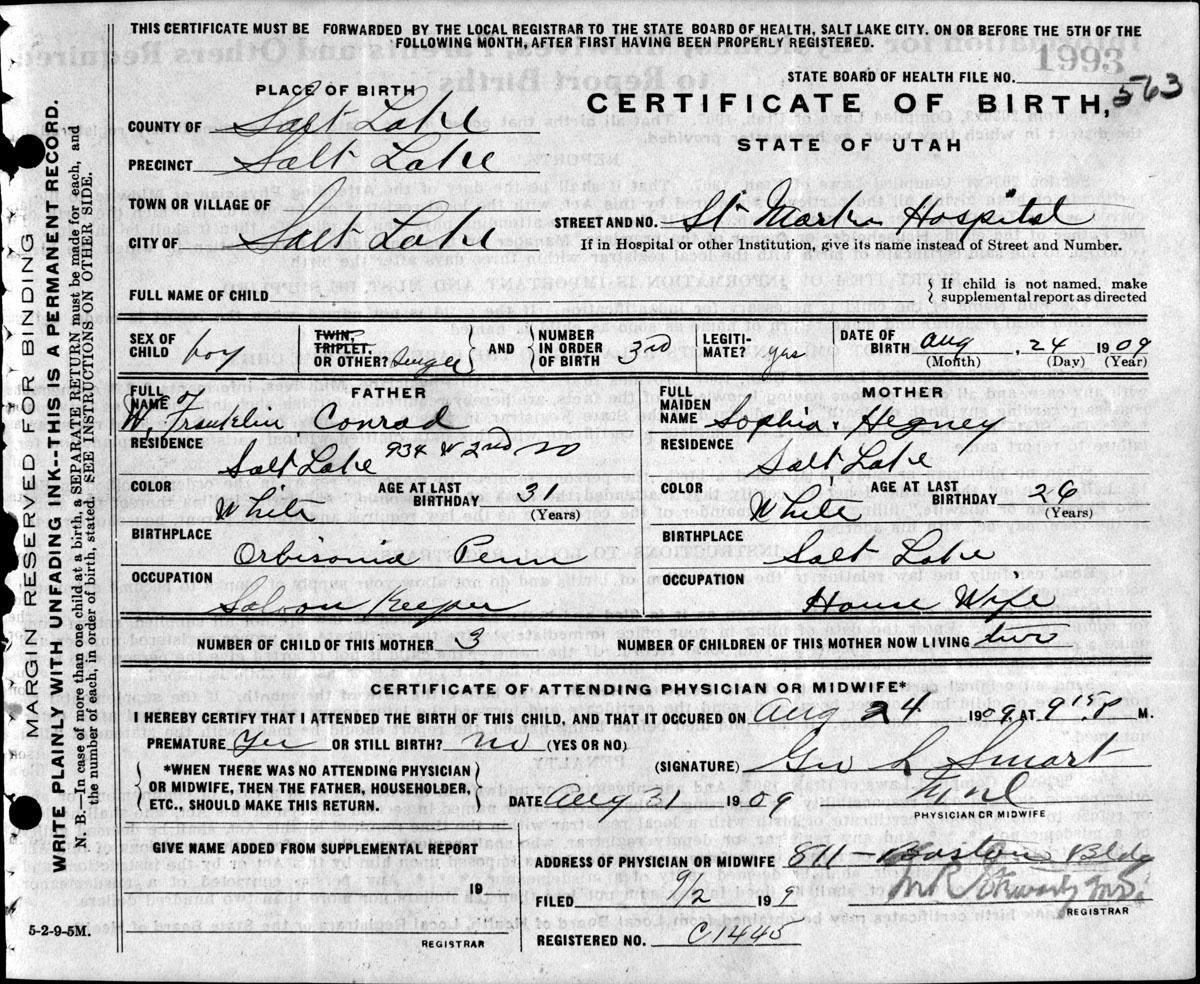 THIS CERTIFICATE MUST BE FORWARDED BY THE LOCAL REGISTRAR TO THE STATE BOARD OF HEALTH, SALT LAKE CITY. ON OR BEFORE THE 5TH OF THE
FOLLOWING MONTH, AFTER FIRST HAVING BEEN PROPERLY REGISTERED.
1993
STATE BOARD OF HEALTH FILE NO. 563
PLACE OF BIRTH
CERTIFICATE OF BIRTH,
STATE OF UTAH
COUNTY OF Salt Lake
PRECINCT Salt Lake
TOWN OR VILLAGE OF
CITY OF Salt Lake
STREET AND NO. St Marks Hospital
If in Hospital or other Institution, give its name instead of Street and Number.
FULL NAME OF CHILD
If child is not named, make
supplemental report as directed
SEX OF CHILD boy
TWIN, TRIPLET, OR OTHER? Single
AND NUMBER IN ORDER OF BIRTH 3rd
LEGITI-MATE? yas
DATE OF BIRTH Aug, 24 1909
(Month) (Day) (Year)
FATHER
FULL NAME of W. Franklin Conrad
RESIDENCE Salt Lake 934 W 2nd no
COLOR White
AGE AT LAST BIRTHDAY 31
(Years)
BIRTHPLACE
Orbisonia Penn
OCCUPATION
Saloon Keeper
MOTHER
FULL MAIDEN NAME Sophia Hegney
RESIDENCE
Salt Lake
COLOR White
AGE AT LAST BIRTHDAY 26
(Years)
BIRTHPLACE
Salt Lake
OCCUPATION
House Wife
NUMBER OF CHILD OF THIS MOTHER 3
NUMBER OF CHILDREN OF THIS MOTHER NOW LIVING two
CERTIFICATE OF ATTENDING PHYSICIAN OR MIDWIFE*
I HEREBY CERTIFY THAT I ATTENDED THE BIRTH OF THIS CHILD, AND THAT IT OCCURED ON Aug 24 1909, AT 9 15 P M.
PREMATURE Yes OR STILL BIRTH? no (YES OR NO)
*WHEN THERE WAS NO ATTENDING PHYSICIAN
OR MIDWIFE, THEN THE FATHER, HOUSEHOLDER,
ETC., SHOULD MAKE THIS RETURN.
(SIGNATURE) Geo L Smart
DATE Aug 31 1909
PHYSICIAN OR MIDWIFE
GIVE NAME ADDED FROM SUPPLEMENTAL REPORT
19
REGISTRAR
ADDRESS OF PHYSICIAN OR MIDWIFE 811 - Boston Bldg
FILED 9/2 199
REGISTRAR
REGISTERED NO. C1445
5-2-9-5M.
MARGIN RESERVED FOR BINDING
WRITE PLAINLY WITH UNFADING INK--THIS IS A PERMANENT RECORD.
N. B.—In case of more than one child at a birth, a SEPARATE RETURN must be made for each, and
the number of each, in order of birth, stated. SEE INSTRUCTIONS ON OTHER SIDE.